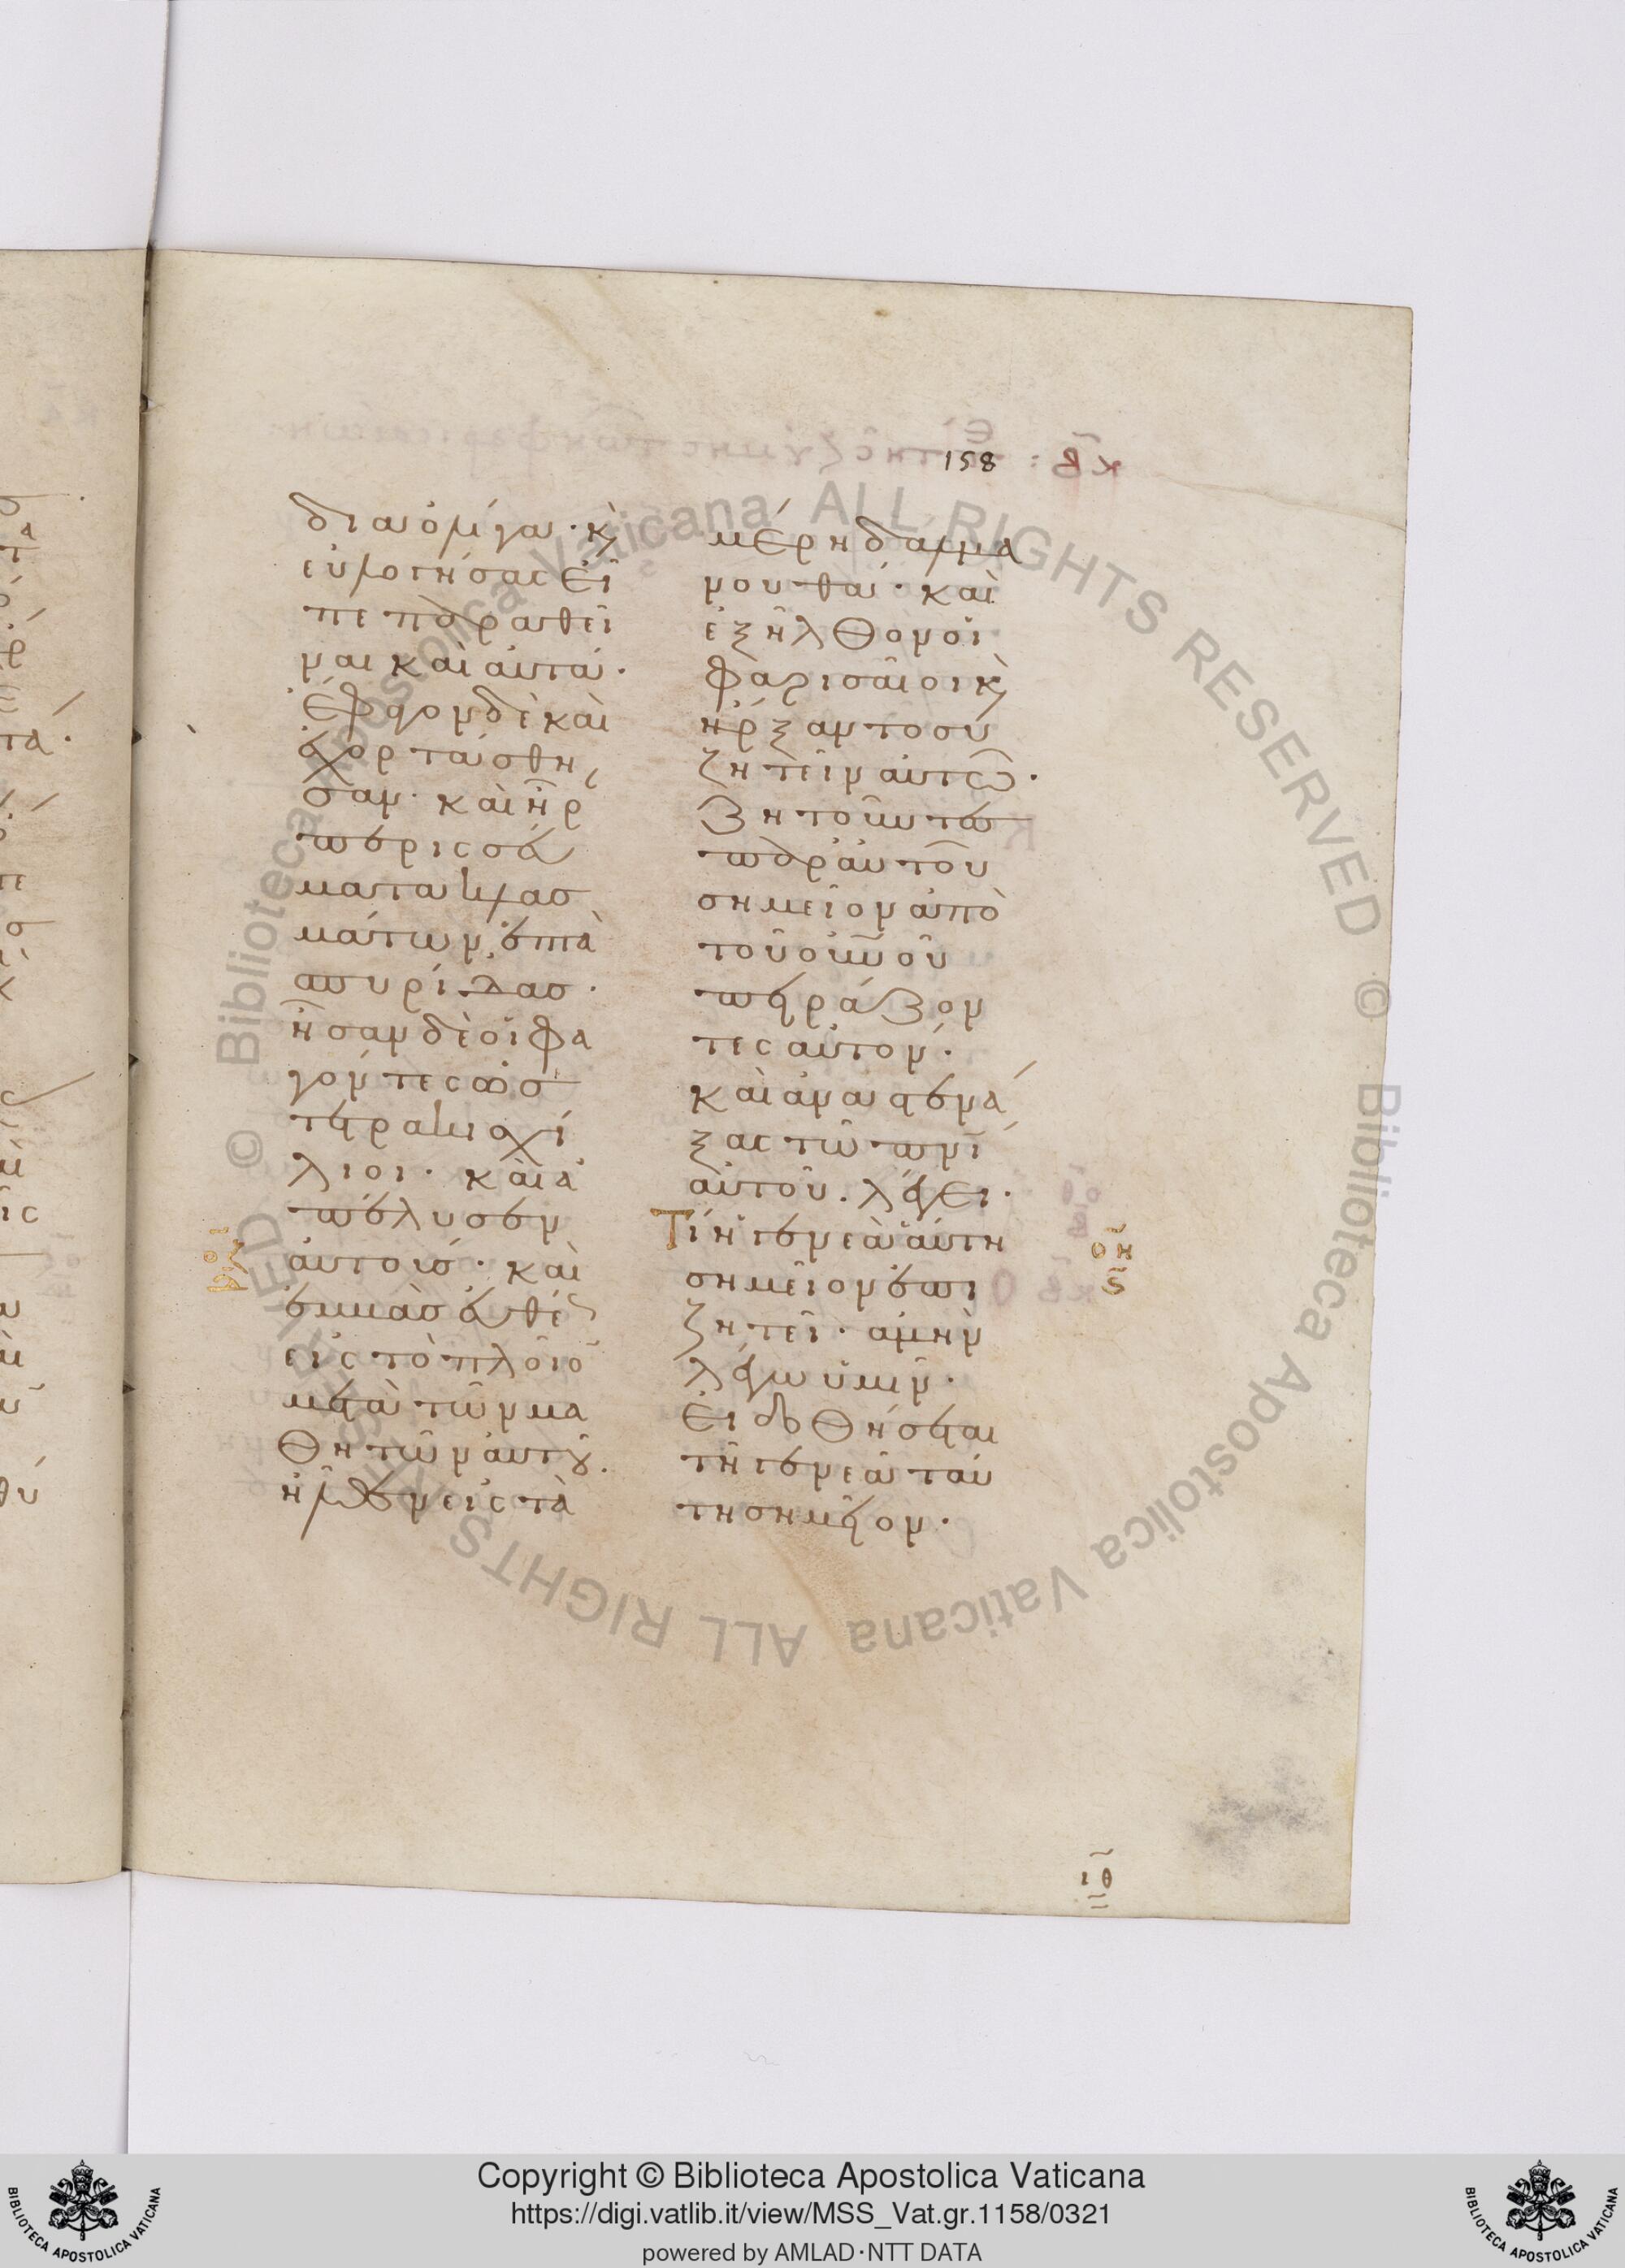 158
δια ὀλίγα· κ(αὶ)
εὐλογήσας εἶ
πε παραθεῖ
ναι καὶ αὐτά·
ἔφαγον δὲ καὶ
ἐχορτάσθη
σαν· καὶ ἦρ
περισσεύ
ματα κλασ
μάτων, ἑπτὰ
σπυρίδας·
ἦσαν δὲ οἱ φα
γόντες ὡσ
τετρακισχί
λιοι· καὶ ἀ
πέλυσεν
αὐτούσ· καὶ
ἐμβὰσ εὐθὺς
εἰς τὸ πλοῖο
μετὰ τῶν μα
θητῶν αὐτοῦ.
ἦλθεν εἰς τὰ
μέρη δαλμα
νουθά· καὶ
ἐξῆλθον οἱ
φαρισαῖοι κ(αὶ)
ἤρξαντο συ
ζητεῖν αὐτῶ·
ζητοῦντες
παρ' αὐτοῦ
σημεῖον ἀπὸ
τοῦ οὐνοῦ
πειράζον
τες αὐτόν·
καὶ ἀναστενά
ξας τῶ πνι
αὐτοῦ. λέγει·
Τί ἡ γενεὰ αὕτη
σημεῖον ἐπι
ζητεῖ· ἀμὴν
λέγω ὑμῖν·
εἰ δοθήσεται
τῆ γενεᾶ ταύ
τη σημεῖον·
οη
ϛ
ιθ
Copyright © Biblioteca Apostolica Vaticana
https://digi.vatlib.it/view/MSS_Vat.gr.1158/0321
powered by AMLAD·NTT DATA